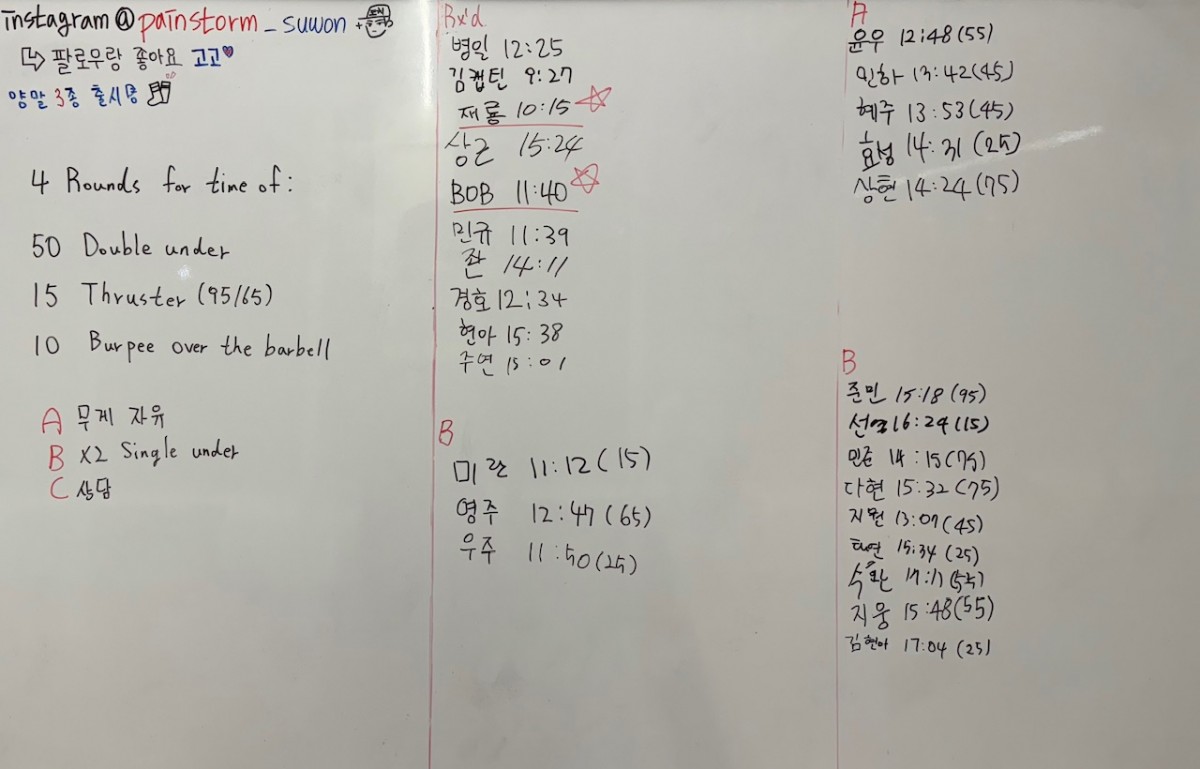 instagram@painstorm_suwon
팔로우랑 좋아요 고고
양말 3종 출시용
4 Rounds for time of:
50 Double under
15 Thruster (95/65)
10 Burpee over the barbell
A 무게 자유
B X2 Single under
C 상담
Rx'd
병일 12:25
김캡틴 9:27
재룡 10:15
상근 15:24
BOB 11:40
민규 11:39
좐 14:11
경호 12:34
현아 15:38
주연 15:01
B
미란 11:12 (15)
영주 12:47 (65)
우주 11:50 (25)
A
윤우 12:48 (55)
민하 13:42 (45)
혜주 13:53 (45)
효성 14:31 (25)
상현 14:24 (75)
B
준민 15:18 (95)
선영 16:24 (15)
14:15 (75)
다현 15:32 (75)
지원 13:07 (45)
태연 15:34 (25)
수환 (55)
지웅 15:48 (55)
김현아 17:04 (25)